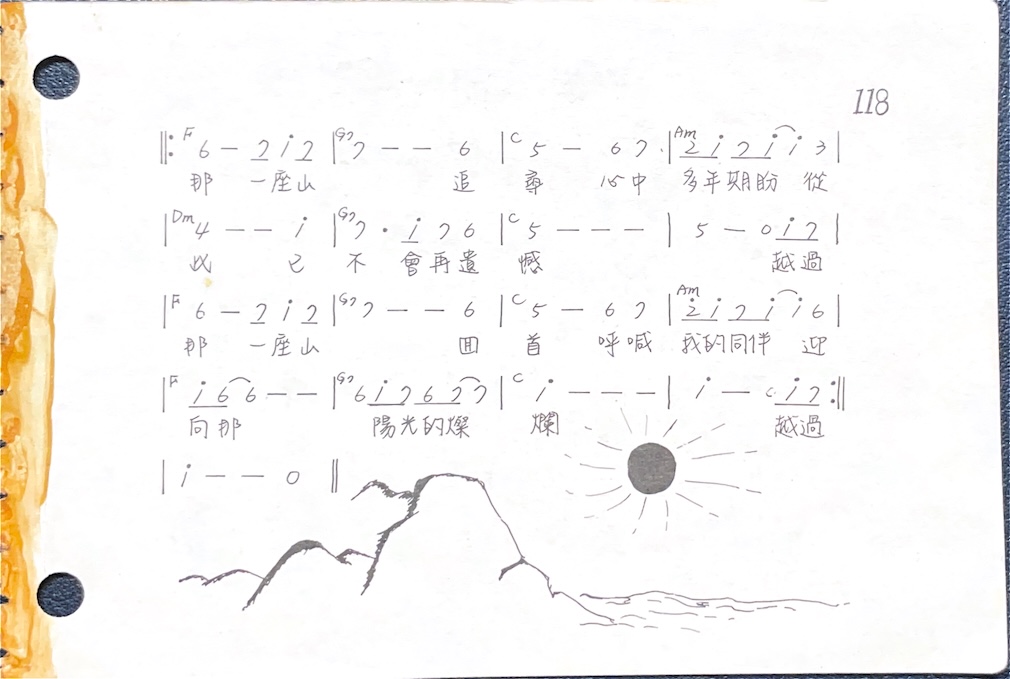 118
‖: F 6 — 7 i 7 | G7 7 — — 6 | C 5 — 6 7 . | Am 2 i 7 i i 3 |
那 一座山 追 尋 心中 多年期盼 從
| Dm 4 — — i | G7 7 · i 7 6 | C 5 — — — | 5 — 0 i 7 |
此 已 不 會再遺 憾 越過
| F 6 — 7 i 7 | G7 7 — — 6 | C 5 — 6 7 | Am 2 i 7 i i 6 |
那 一座山 回 首 呼喊 我的同伴 迎
| F i 6 6 — — | G7 6 i 7 6 7 7 | C i — — — | i — 0 i 7 :‖
向那 陽光的燦 爛 越過
| i — — 0 ‖